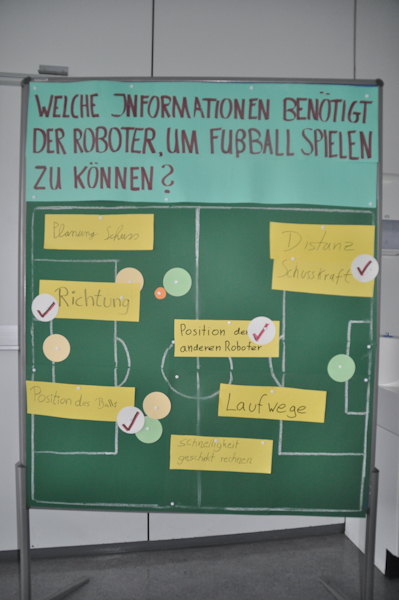 WELCHE INFORMATIONEN BENÖTIGT
DER ROBOTER, UM FUßBALL SPIELEN
ZU KÖNNEN?
Planung Schuss
Distanz
Schusskraft
Richtung
Position der
anderen Roboter
Position des Balls
Laufwege
schnelligkeit
geschickt rechnen